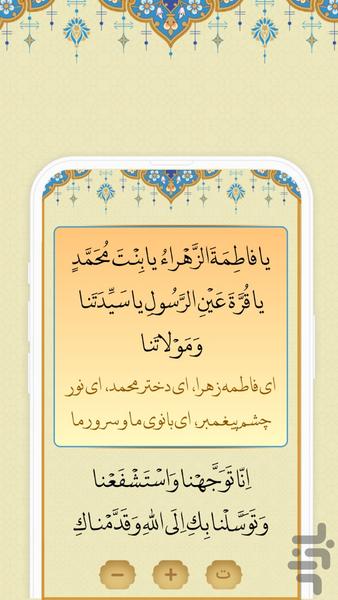 يا فاطِمَةَ الزَّهْراءُ يا بِنْتَ مُحَمَّدٍ
يا قُرَّةَ عَيْنِ الرَّسُولِ يا سَيِّدَتَنا
وَ مَوْلاتَنا
ای فاطمه زهرا، ای دختر محمد، ای نور
چشم پیغمبر، ای بانوی ما و سرور ما
اِنّا تَوَجَّهْنا وَاسْتَشْفَعْنا
وَ تَوَسَّلْنا بِكِ اِلَى اللهِ وَ قَدَّمْناكِ
− + ت
بازار